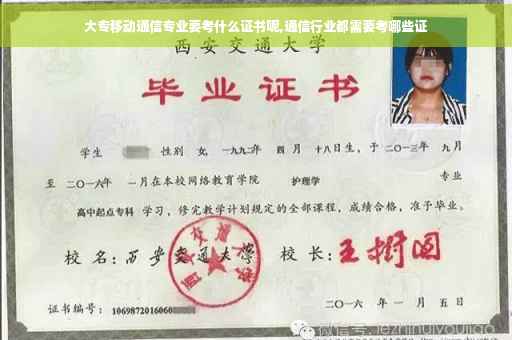 大专移动通信专业要考什么证书呢,通信行业都需要考哪些证
西安交通大学
毕业证书
学生 性别 女, 一九九二年 四月 十八日生, 于二〇一三年 九月
至 二〇一六年 一月在本校网络教育学院 护理学 专业
高中起点专科 学习, 修完教学计划规定的全部课程, 成绩合格, 准予毕业。
校 名: 西安交通大学 校 长: 王树国
西安交通大学
证书编号: 1069872016060
二〇一六 年 一 月 五 日
微信号: jezhihuiyoujiao